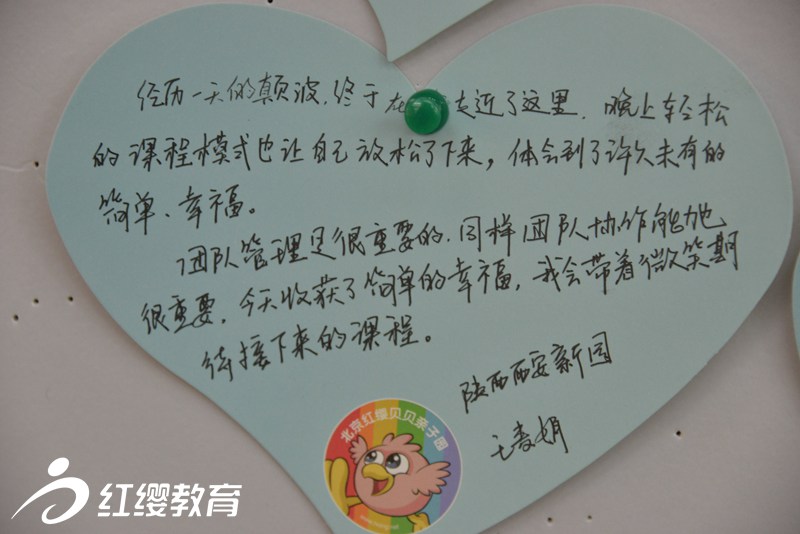 经历一天的颠波.终于在 走近了这里.晚上轻松
的课程模式也让自己放松了下来,体会到了许久未有的
简单、幸福。
团队管理是很重要的.同样团队协作能力也
很重要.今天收获了简单的幸福,我会带着微笑期
待接下来的课程。
陕西西安新园
王
娟
北京红缨贝贝亲子园
红缨教育